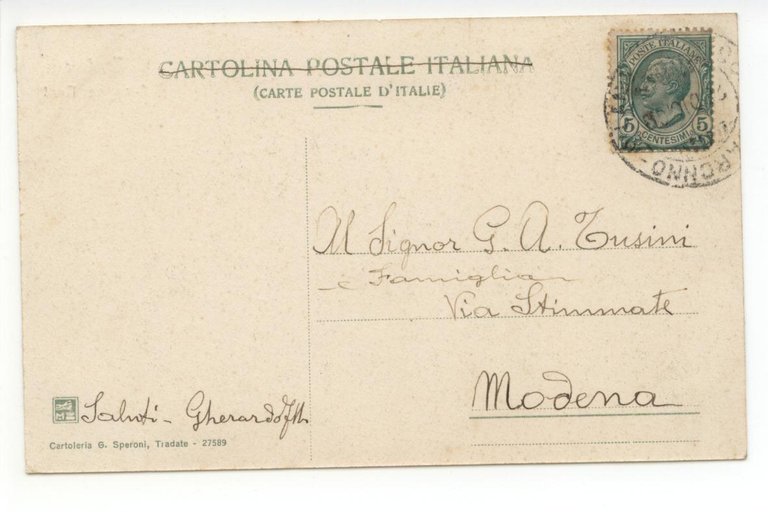 CARTOLINA POSTALE ITALIANA
(CARTE POSTALE D'ITALIE)
POSTE ITALIANE
5 CENTESIMI 5
Al Signor G. A. Tusini
e Famiglia
Via Stimmate
Modena
Saluti - Gherardo
Cartoleria G. Speroni, Tradate - 27589